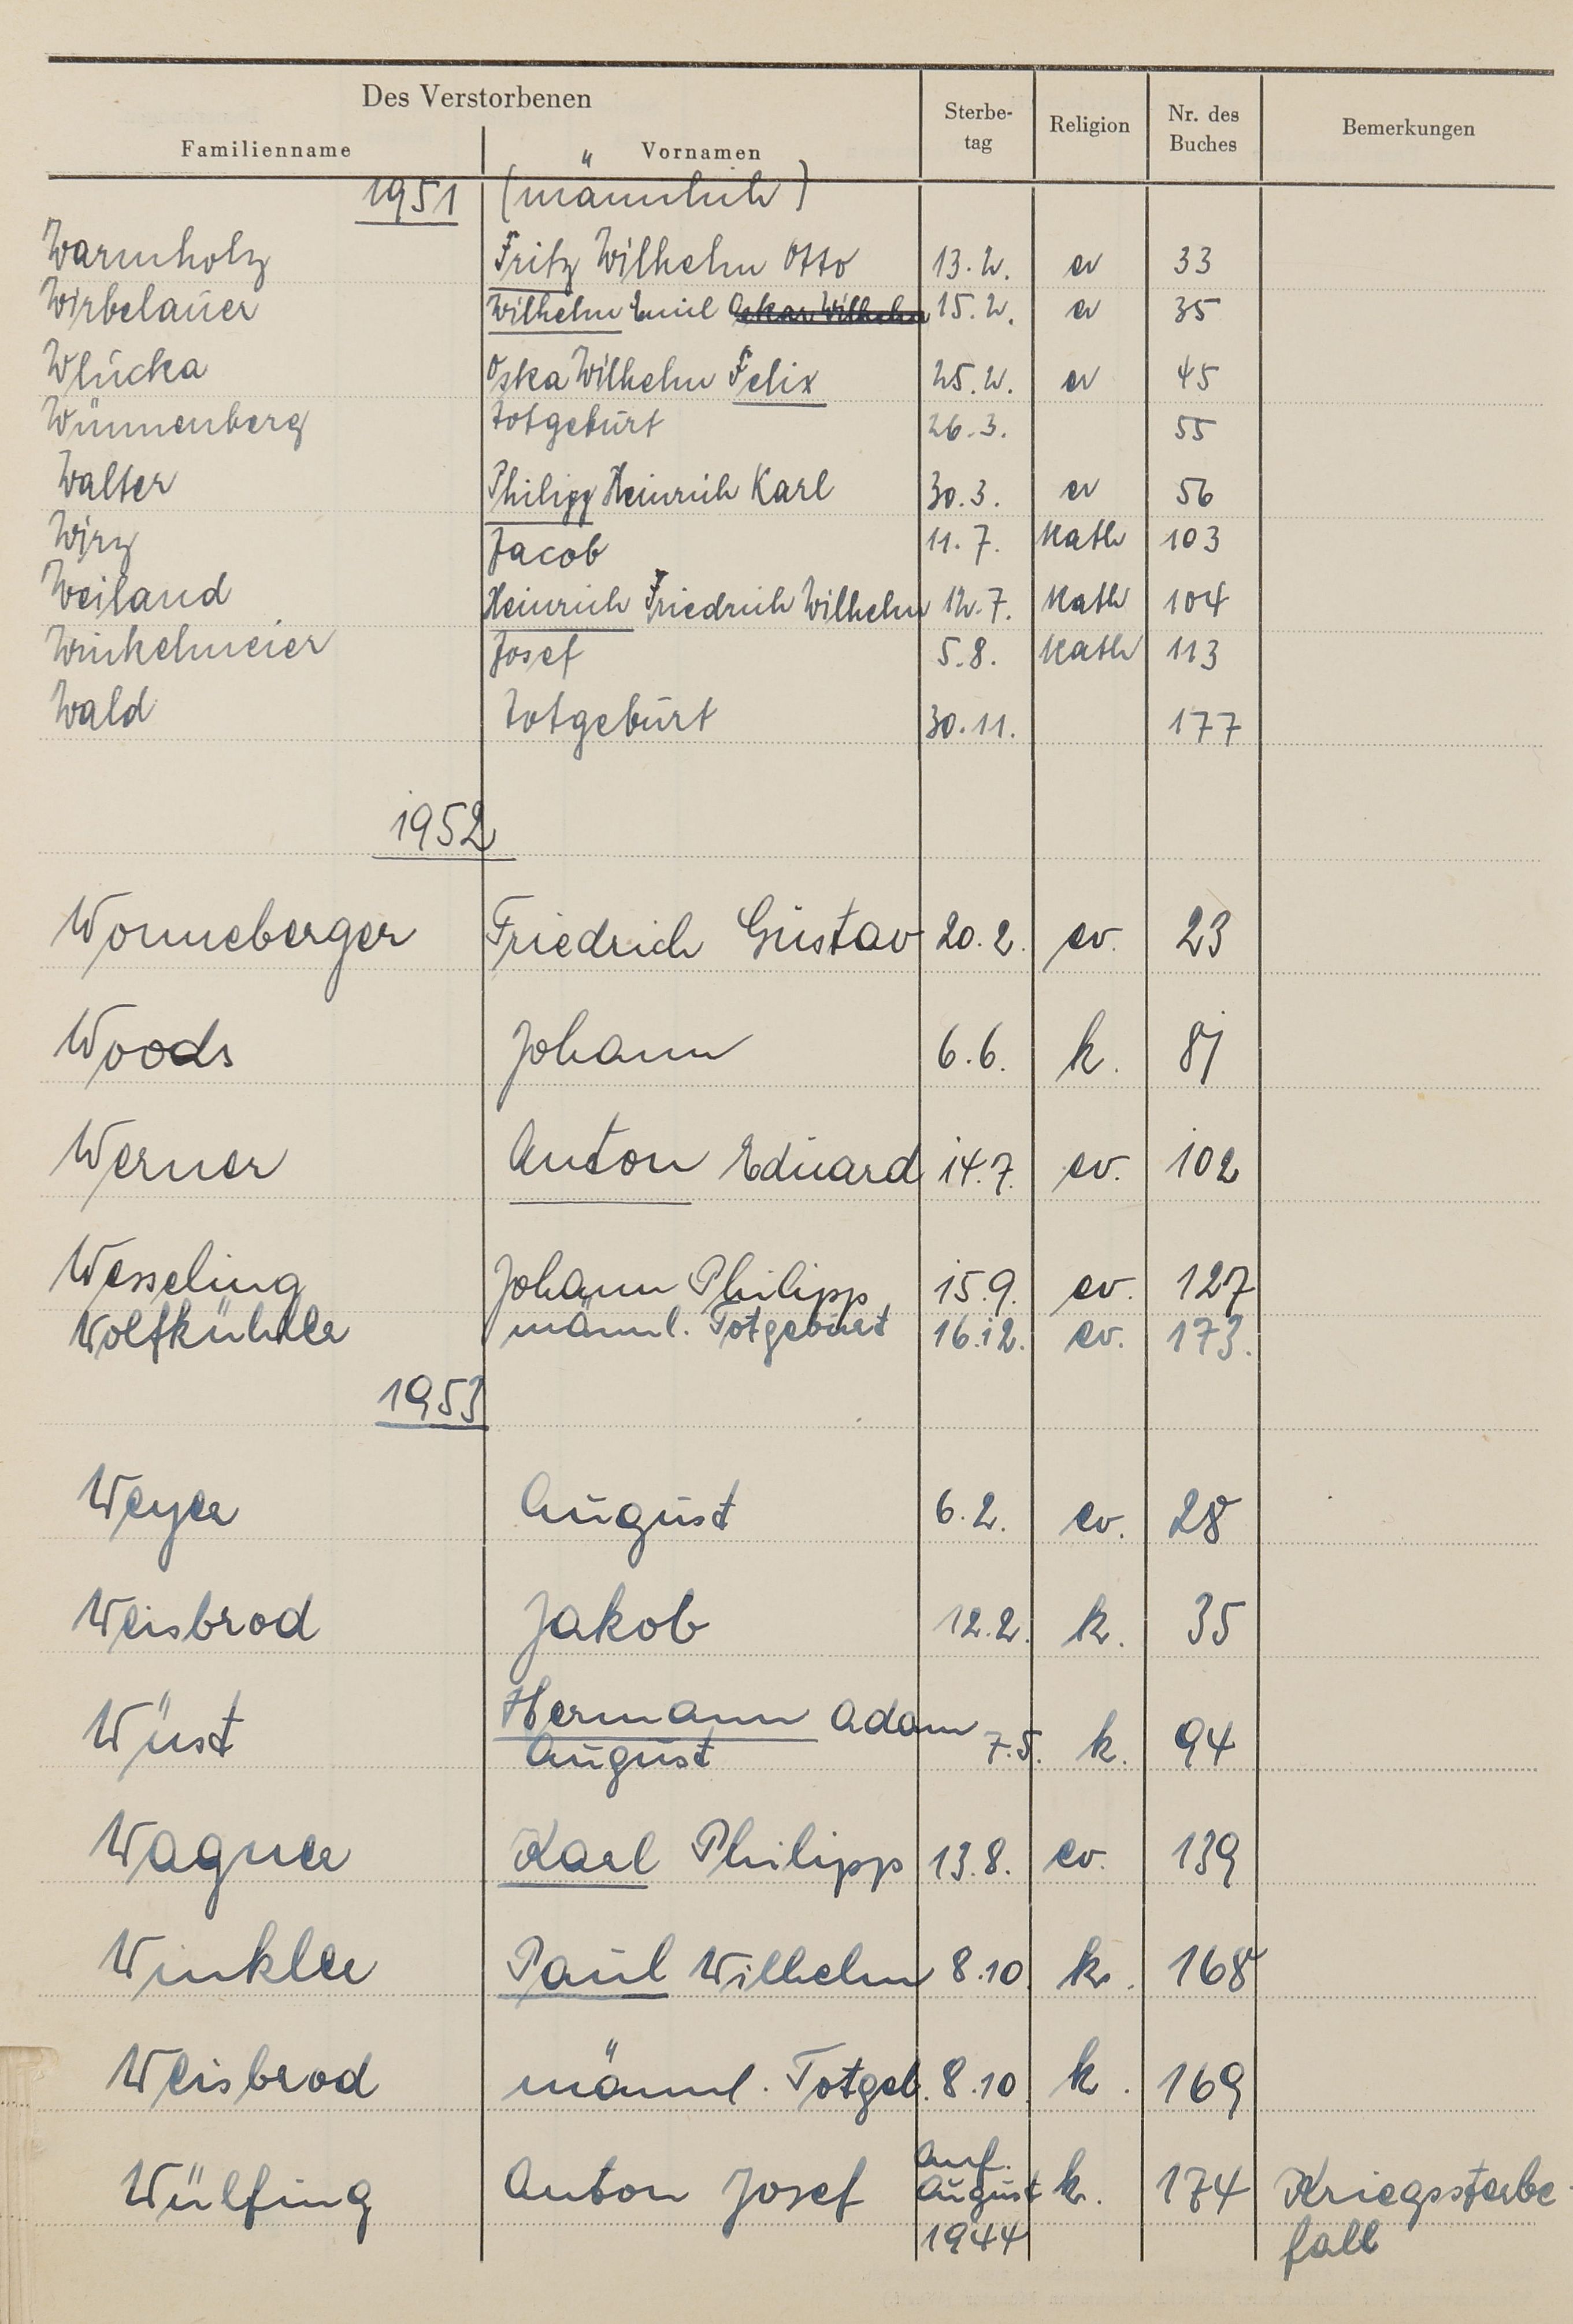 Des Verstorbenen
Familienname Vornamen Sterbe- tag Religion Nr. des Buches Bemerkungen
1951 (männlich)
Warmholz Fritz Wilhelm Otto 13.2. ev 33
Wirbelauer Wilhelm Emil Oskar Wilhelm 15.2. ev 35
Wlücka Oska Wilhelm Felix 25.2. ev 45
Wünnenberg Totgeburt 26.3. 55
Walter Philipp Heinrich Karl 30.3. ev 56
Wirz Jacob 11.7. Kath 103
Weiland Heinrich Friedrich Wilhelm 12.7. Kath 104
Winkelmeier Josef 5.8. Kath 113
Wald Totgeburt 30.11. 177
1952
Wonneberger Friedrich Gustav 20.2. ev. 23
Woods Johann 6.6. k. 81
Werner Anton Eduard 14.7. ev. 102
Wesseling Johann Philipp 15.9. ev. 127
Wolfkühler männl. Totgeburt 16.12. ev. 173.
1953
Weyer August 6.2. ev. 28
Weisbrod Jakob 12.2. k. 35
Wüst Hermann Adam 7.5. k. 94
August
Wagner Karl Philipp 13.8. ev. 139
Winkler Paul Wilhelm 8.10 k. 168
Weisbrod männl. Totgeb. 8.10 k. 169
Wülfing Anton Josef Anf. August 1944 k. 174 Kriegssterbe-
fall